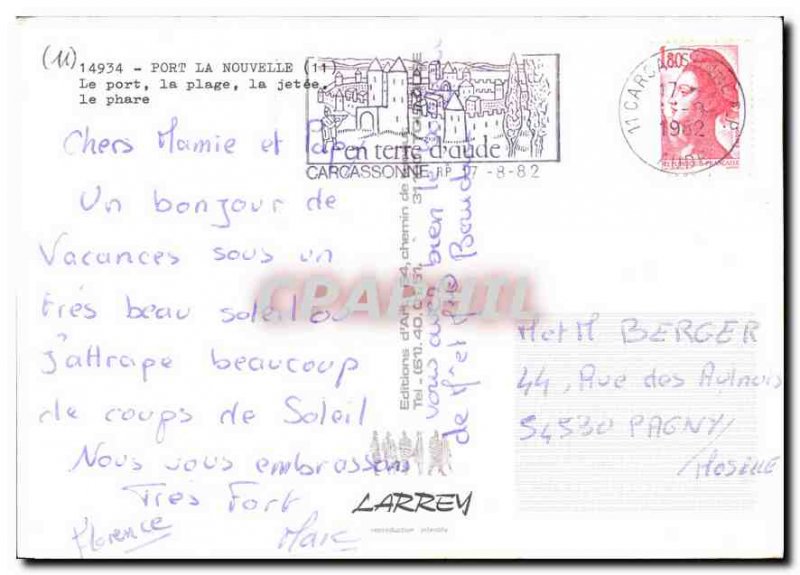 (11)
14934 - PORT LA NOUVELLE (11)
Le port, la plage, la jetée,
le phare
Chers Mamie et
Un bonjour de
Vacances sous un
très beau soleil où
j'attrape beaucoup
de coups de Soleil
Nous vous embrassons
Très Fort
Florence Marc
en terre d'aude
CARCASSONNE RP 17-8-82
1,80
11 CARCASSONNE R.P.
17-8
1982
AUDE
Editions d'Art 4, chemin de
Tél. (61) 40.
vous avez bien le
de
CPAPHIL
LARREY
reproduction interdite
M et M BERGER
44, Rue des Aulnois
54530 PAGNY/
/MOSELLE